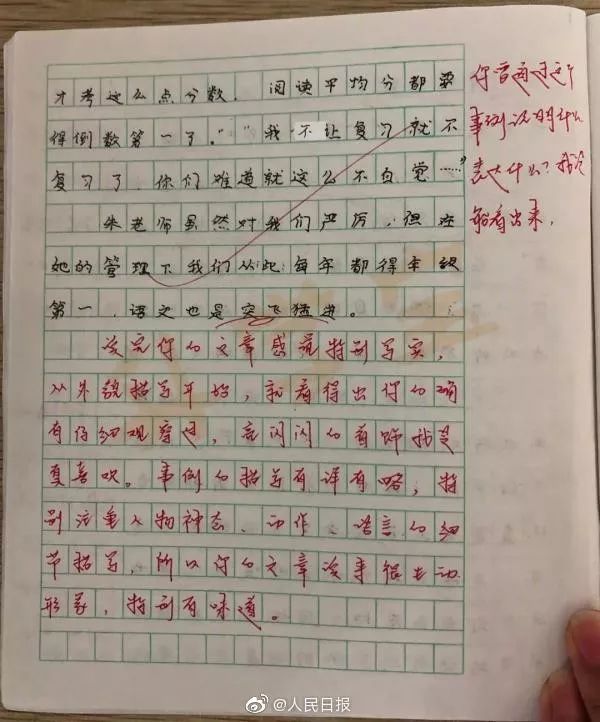 才考这么点分数，阅读平均分都要
得倒数第一了。”“我不让复习就不
复习了，你们难道就这么不自觉……”
朱老师虽然对我们严厉，但在
她的管理下我们从此每年都得年级
第一，语文也是突飞猛进。
读完你的文章感觉特别写实，
从外貌描写开始，就看得出你的确
有仔细观察过，亮闪闪的首饰我是
更喜欢。事例的描写有详有略，特
别注重人物神态、动作、语言的细
节描写，所以你的文章读来很生动
形象，特别有味道。
你曾通过这个
事例说明什么
表达什么？我没
能看出来。
@人民日报